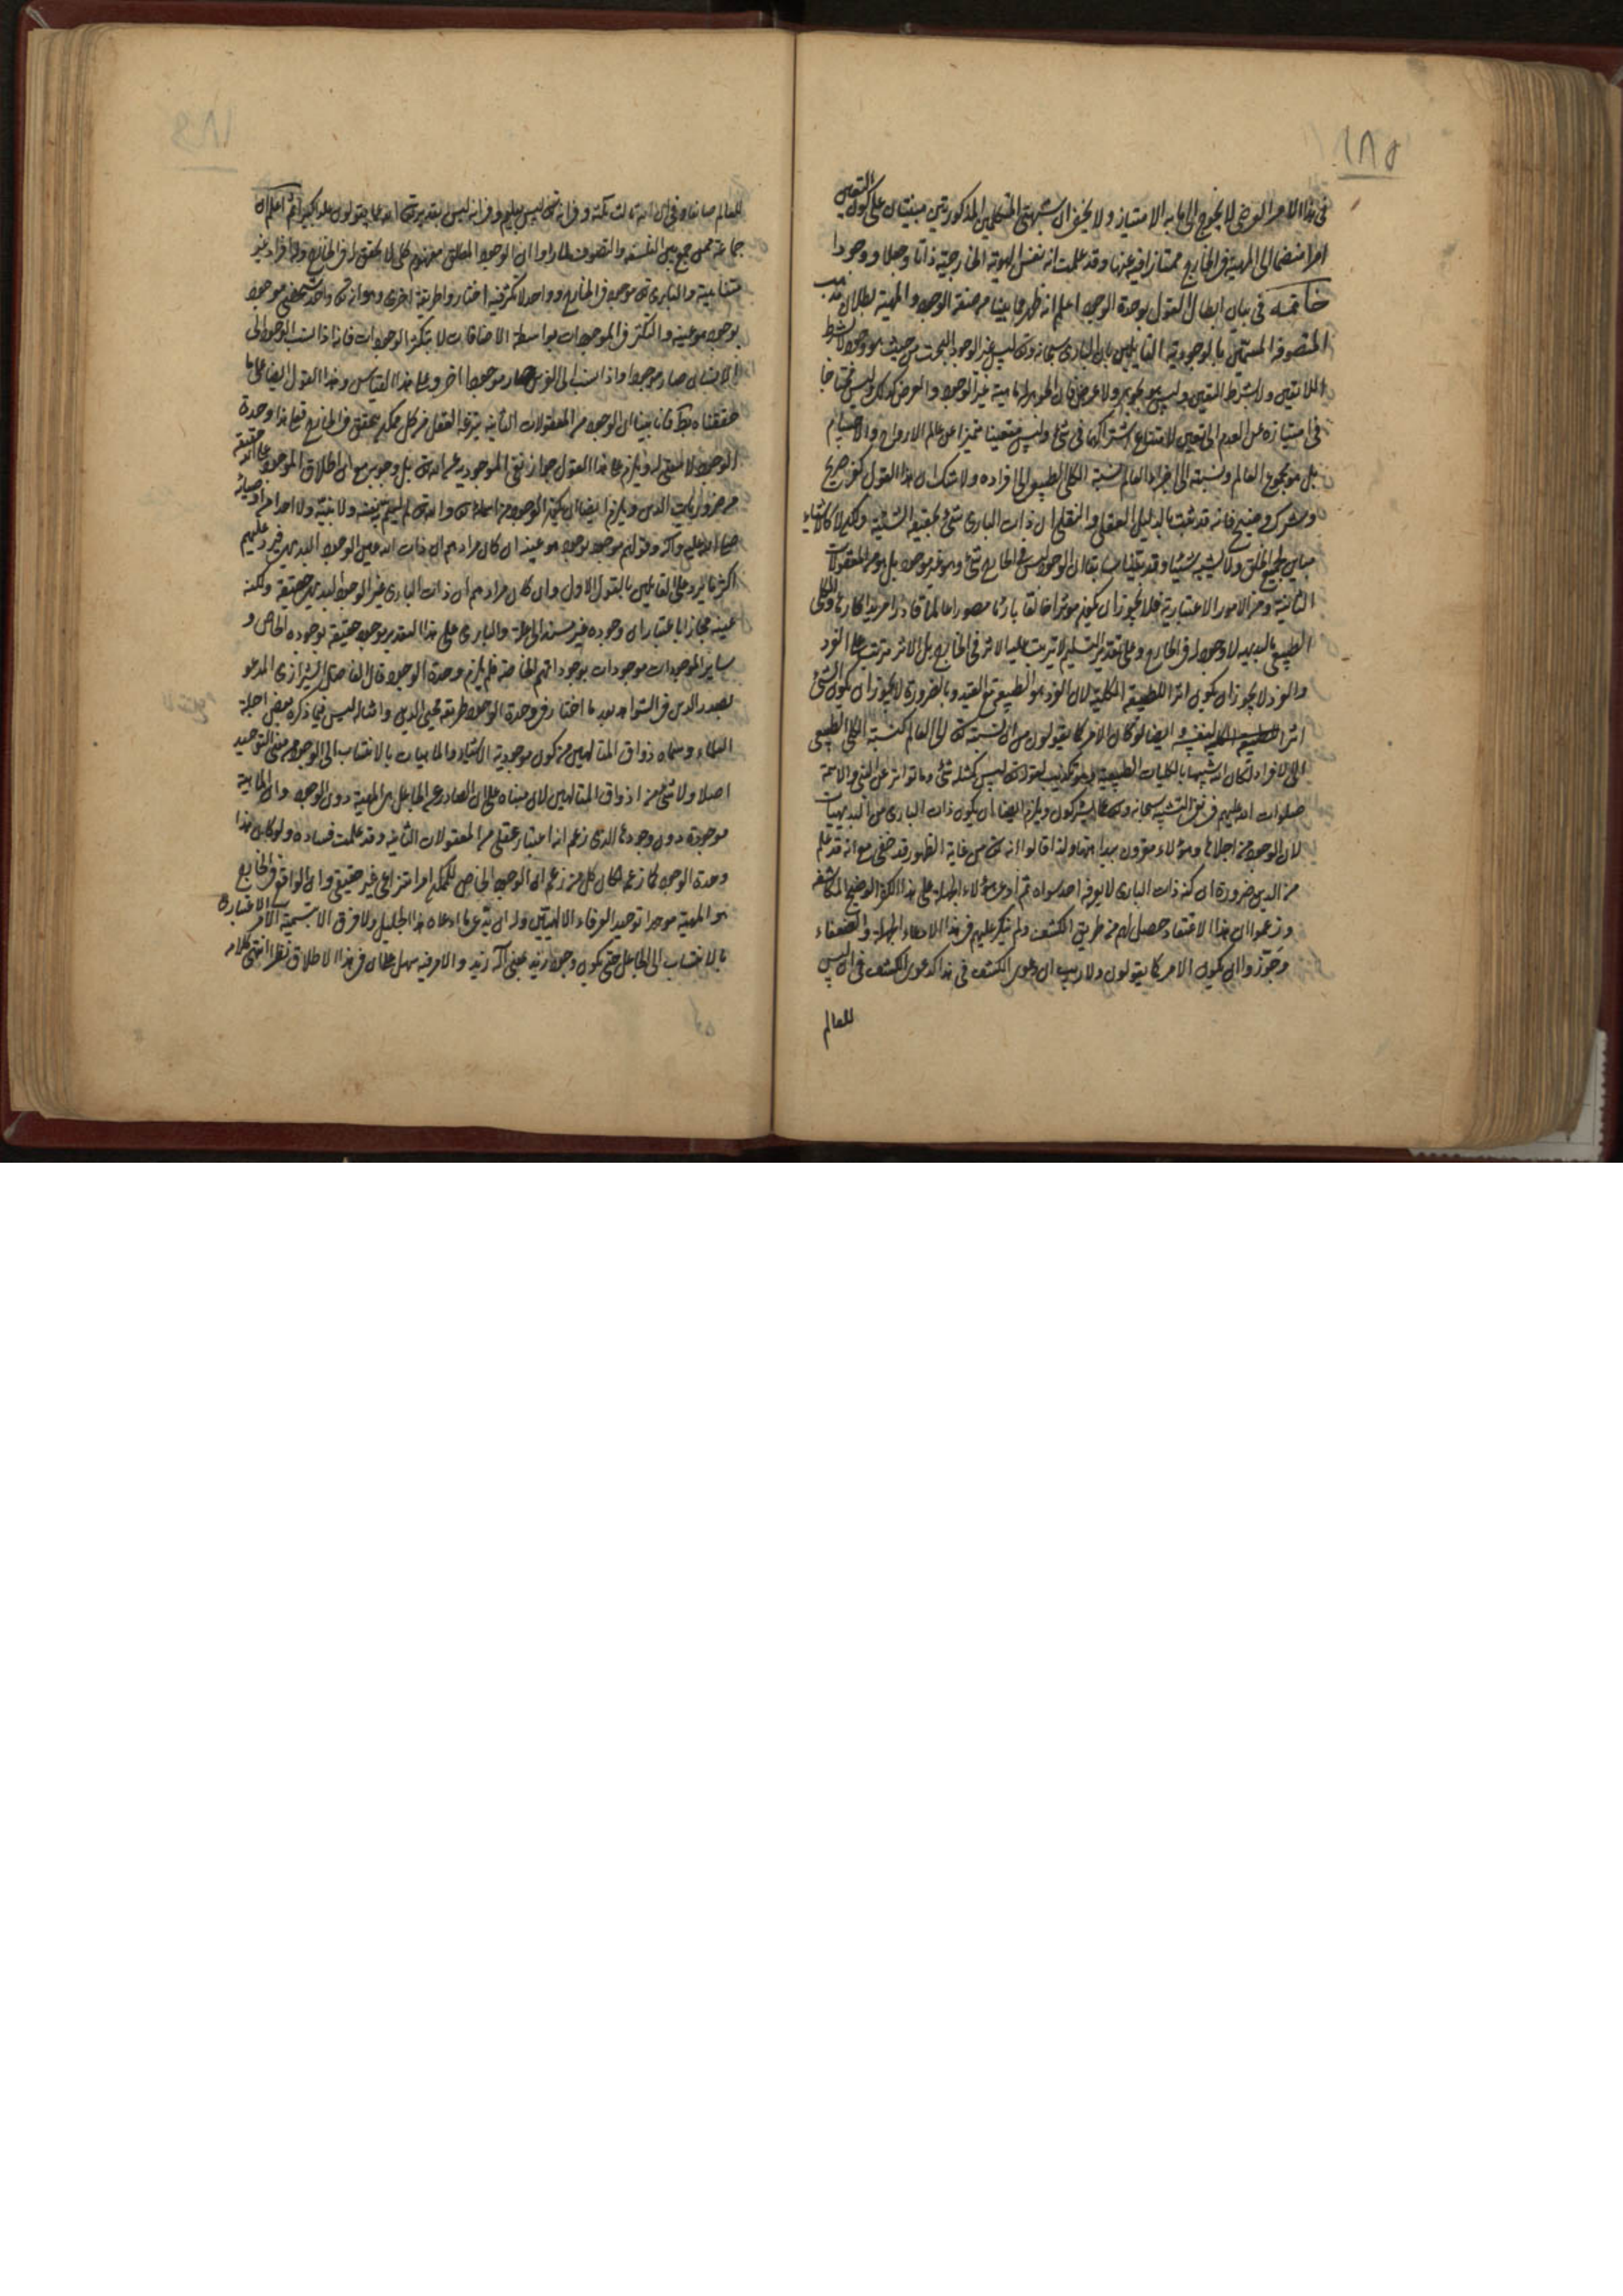 ١٨٥
في هذا الامر العرضي لا يحوج الى ما به الامتياز ولا يخفى ان شبهتي المتكلمين المذكورتين مبنيتان على كون التعين
امرا منضما الى المهية في الخارج ممتازا فيه عنها وقد علمت انه نفس الهوية الخارجية ذاتا وجعلا ووجودا
خاتمة في بيان ابطال القول بوحدة الوجود اعلم انه ظهر مما بينا من صفة الوجود والمهية بطلان مذهب
المتصوفة المسمين بالوجودية القايلين بان الباري سبحانه وتعالى ليس غير الوجود البحت من حيث هو وجود لا بشرط
اللاتعين ولا بشرط التعين وليس بجوهر ولا عرض فان الجوهر له ماهية غير الوجود والعرض كذلك وليس محتاجا
في امتيازه عن العدم الى تعين لامتناع اشتراكهما في شيء وليس متعينا متميزا عن عالم الارواح والاجسام
بل هو مجموع العالم ونسبته الى اجزاء العالم نسبة الكلي الطبيعي الى افراده ولا شك ان هذا القول كفر صريح
وشرك فانه قد ثبت بالدليل العقلي والنقلي ان ذات الباري شيء بحقيقة الشيئية ولكن لا كالاشياء
مباين لجميع الخلق ولا يشبه شيئا وقد بينا سابقا ان الوجود ليس في الخارج شيء وهو غير موجود بل هو من المعقولات
الثانية ومن الامور الاعتبارية فلا يجوز ان يكون مؤثرا خالقا بارئا مصورا عالما قادرا مريدا كارها والكلي
الطبيعي بالبديهة لا وجود له في الخارج وعلى تقدير التسليم لا يترتب عليه الاثر في الخارج بل الاثر مترتب على الفرد
والفرد لا يجوز ان يكون اثرا للطبيعة الكلية لان الفرد هو الطبيعة مع القيد وبالضرورة لا يجوز ان يكون الشيء
اثرا لنفسه وايضا لو كان الامر كما يقولون من ان نسبته تعالى الى العالم كنسبة الكلي الطبيعي
الى الافراد لكان الله شبيها بالكليات الطبيعية وهو تكذيب لقوله تعالى ليس كمثله شيء وما تواتر عن النبي والائمة
صلوات الله عليهم في نفي التشبيه سبحانه وتعالى عما يشركون ويلزم ايضا ان يكون ذات الباري من البديهيات
لان الوجود من اجلاها وهؤلاء مقرون ببداهتها ولذا قالوا انه تعالى من غاية الظهور قد خفي مع انه قد علم
من الدين ضرورة ان كنه ذات الباري لا يعرفه احد سواه ثم ادعى هؤلاء الجهلة على هذا الكفر الواضح المكاشفة
وزعموا ان هذا الاعتقاد حصل لهم من طريق الكشف ولم ينكر عليهم في هذا الادعاء الجهلة والضعفاء
وجوزوا ان يكون الامر كما يقولون ولا ريب ان دعوى الكشف في هذا كدعوى الكشف في ان ليس
للعالم
للعالم صانعا وفي ان الله ثالث ثلثة وفي انه تعالى ليس بعليم وفي انه ليس بقدير تعالى الله عما يقولون علوا كبيرا ثم اعلم ان
جماعة ممن جمع بين الفلسفة والتصوف لما راوا ان الوجود المطلق مفهوم كلي لا تحقق له في الخارج وله افراد غير
متناهية والباري تعالى موجود في الخارج وواحد لا تكثر فيه اختاروا طريقة اخرى وهو انه تعالى واحد شخصي موجود
بوجود هو عينه والتكثر في الموجودات بواسطة الاضافات لا بتكثر الوجودات فانه اذا نسب الوجود الى
الانسان صار موجودا واذا نسب الى الفرس صار موجودا آخر وعلى هذا القياس وهذا القول ايضا على ما
حققناه بط فانا بينا ان الوجود من المعقولات الثانية ينتزعه العقل من كل ممكن يتحقق في الخارج فعلى هذا وحدة
الوجود لا معنى له ويلزم على هذا القول جواز نفي الموجودية عن الله تعالى بل وجوبه مع ان اطلاق الموجود على الله حقيقة
من ضروريات الدين ويلزم ايضا ان يكون الوجود من اسماء الله تعالى والله تعالى لم يسم نفسه ولا نبيه ولا احد من اوصيائه
صلى الله عليه وآله وقولهم موجود بوجود هو عينه ان كان مرادهم ان ذات الله عين الوجود البديهي فيرد عليهم
اكثر ما يرد على القايلين بالقول الاول وان كان مرادهم ان ذات الباري غير الوجود البديهي حقيقة ولكنه
عينه مجازا باعتبار ان وجوده غير مستند الى علة والباري على هذا التقدير موجود حقيقة بوجوده الخاص و
ساير الموجودات موجودات بوجوداتهم الخاصة فلم يلزم وحدة الوجود قال الفاضل الشيرازي المدعو
بصدر الدين في الشواهد بعد ما اختار في وحدة الوجود طريقة محيي الدين وامثاله ليس فيما ذكره بعض اجلة
العلماء وسماه ذوق المتالهين من كون موجودية الاشياء والماهيات بالانتساب الى الوجود معنى التوحيد
اصلا ولا شيء من اذواق المتالهين لان مبناه على ان الصادر عن الجاعل هي المهية دون الوجود وان الماهية
موجودة دون وجودها الذي زعم انه اعتبار عقلي من المعقولات الثانية وقد علمت فساده ولو كان هذا
وحدة الوجود كما زعمه لكان كل من زعم ان الوجود الخاص للممكن امر انتزاعي غير حقيقي وان الواقع في الخارج
هو المهية موحدا توحيد العرفاء الالهيين وله ان يدعي ما ادعاه هذا الجليل ولا فرق الا بتسمية الامر الاعتباري
بالانتساب الى الجاعل حتى يكون وجود زيد بمعنى اله زيد والامر فيه سهل على ان في هذا الاطلاق نظرا انتهى كلامه